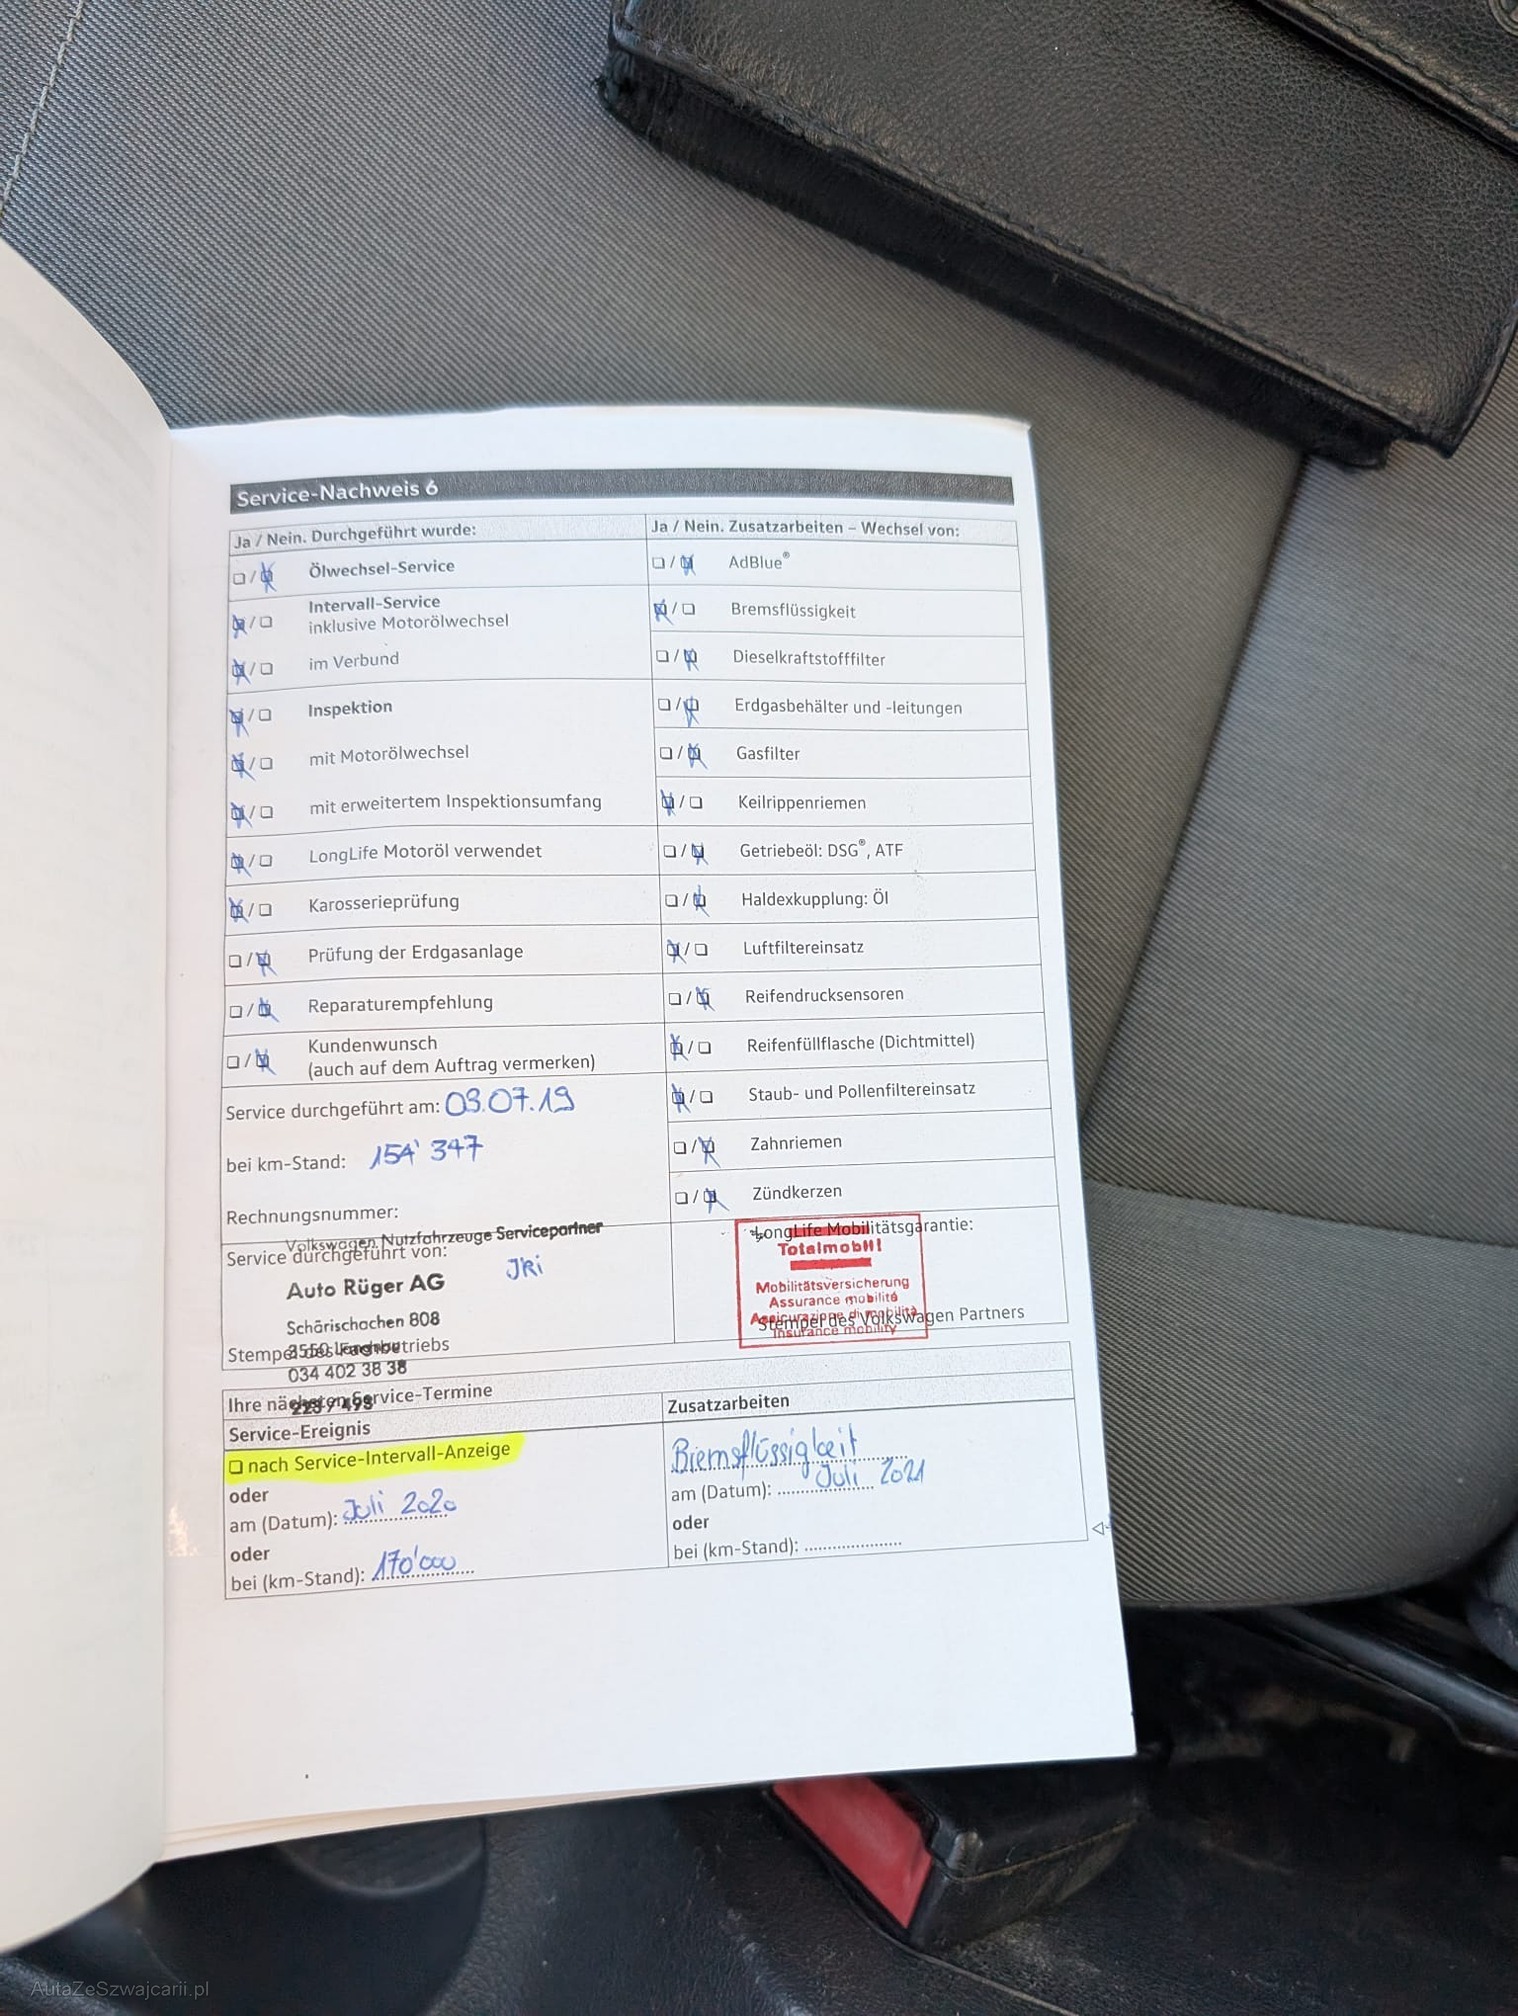 Service-Nachweis 6
Ja / Nein. Durchgeführt wurde:
Ölwechsel-Service
Intervall-Service
inklusive Motorölwechsel
im Verbund
Inspektion
mit Motorölwechsel
mit erweitertem Inspektionsumfang
LongLife Motoröl verwendet
Karosserieprüfung
Prüfung der Erdgasanlage
Reparaturempfehlung
Kundenwunsch
(auch auf dem Auftrag vermerken)
Service durchgeführt am: 09.07.19
bei km-Stand: 154'347
Rechnungsnummer:
Volkswagen Nutzfahrzeuge Servicepartner
Service durchgeführt von:
JRi
Auto Rüger AG
Schärischachen 808
3550 Langnau
Stempel des Fachbetriebs
034 402 38 38
Ja / Nein. Zusatzarbeiten – Wechsel von:
AdBlue®
Bremsflüssigkeit
Dieselkraftstofffilter
Erdgasbehälter und -leitungen
Gasfilter
Keilrippenriemen
Getriebeöl: DSG®, ATF
Haldexkupplung: Öl
Luftfiltereinsatz
Reifendrucksensoren
Reifenfüllflasche (Dichtmittel)
Staub- und Pollenfiltereinsatz
Zahnriemen
Zündkerzen
LongLife Mobilitätsgarantie:
Totalmobil!
Mobilitätsversicherung
Assurance mobilité
Assicurazione di mobilità
Insurance mobility
Stempel des Volkswagen Partners
Ihre nächsten Service-Termine
223 / 493
Service-Ereignis
nach Service-Intervall-Anzeige
oder
am (Datum): Juli 2020
oder
bei (km-Stand): 170'000
Zusatzarbeiten
Bremsflüssigkeit
am (Datum): Juli 2021
oder
bei (km-Stand):
AutaZeSzwajcarii.pl